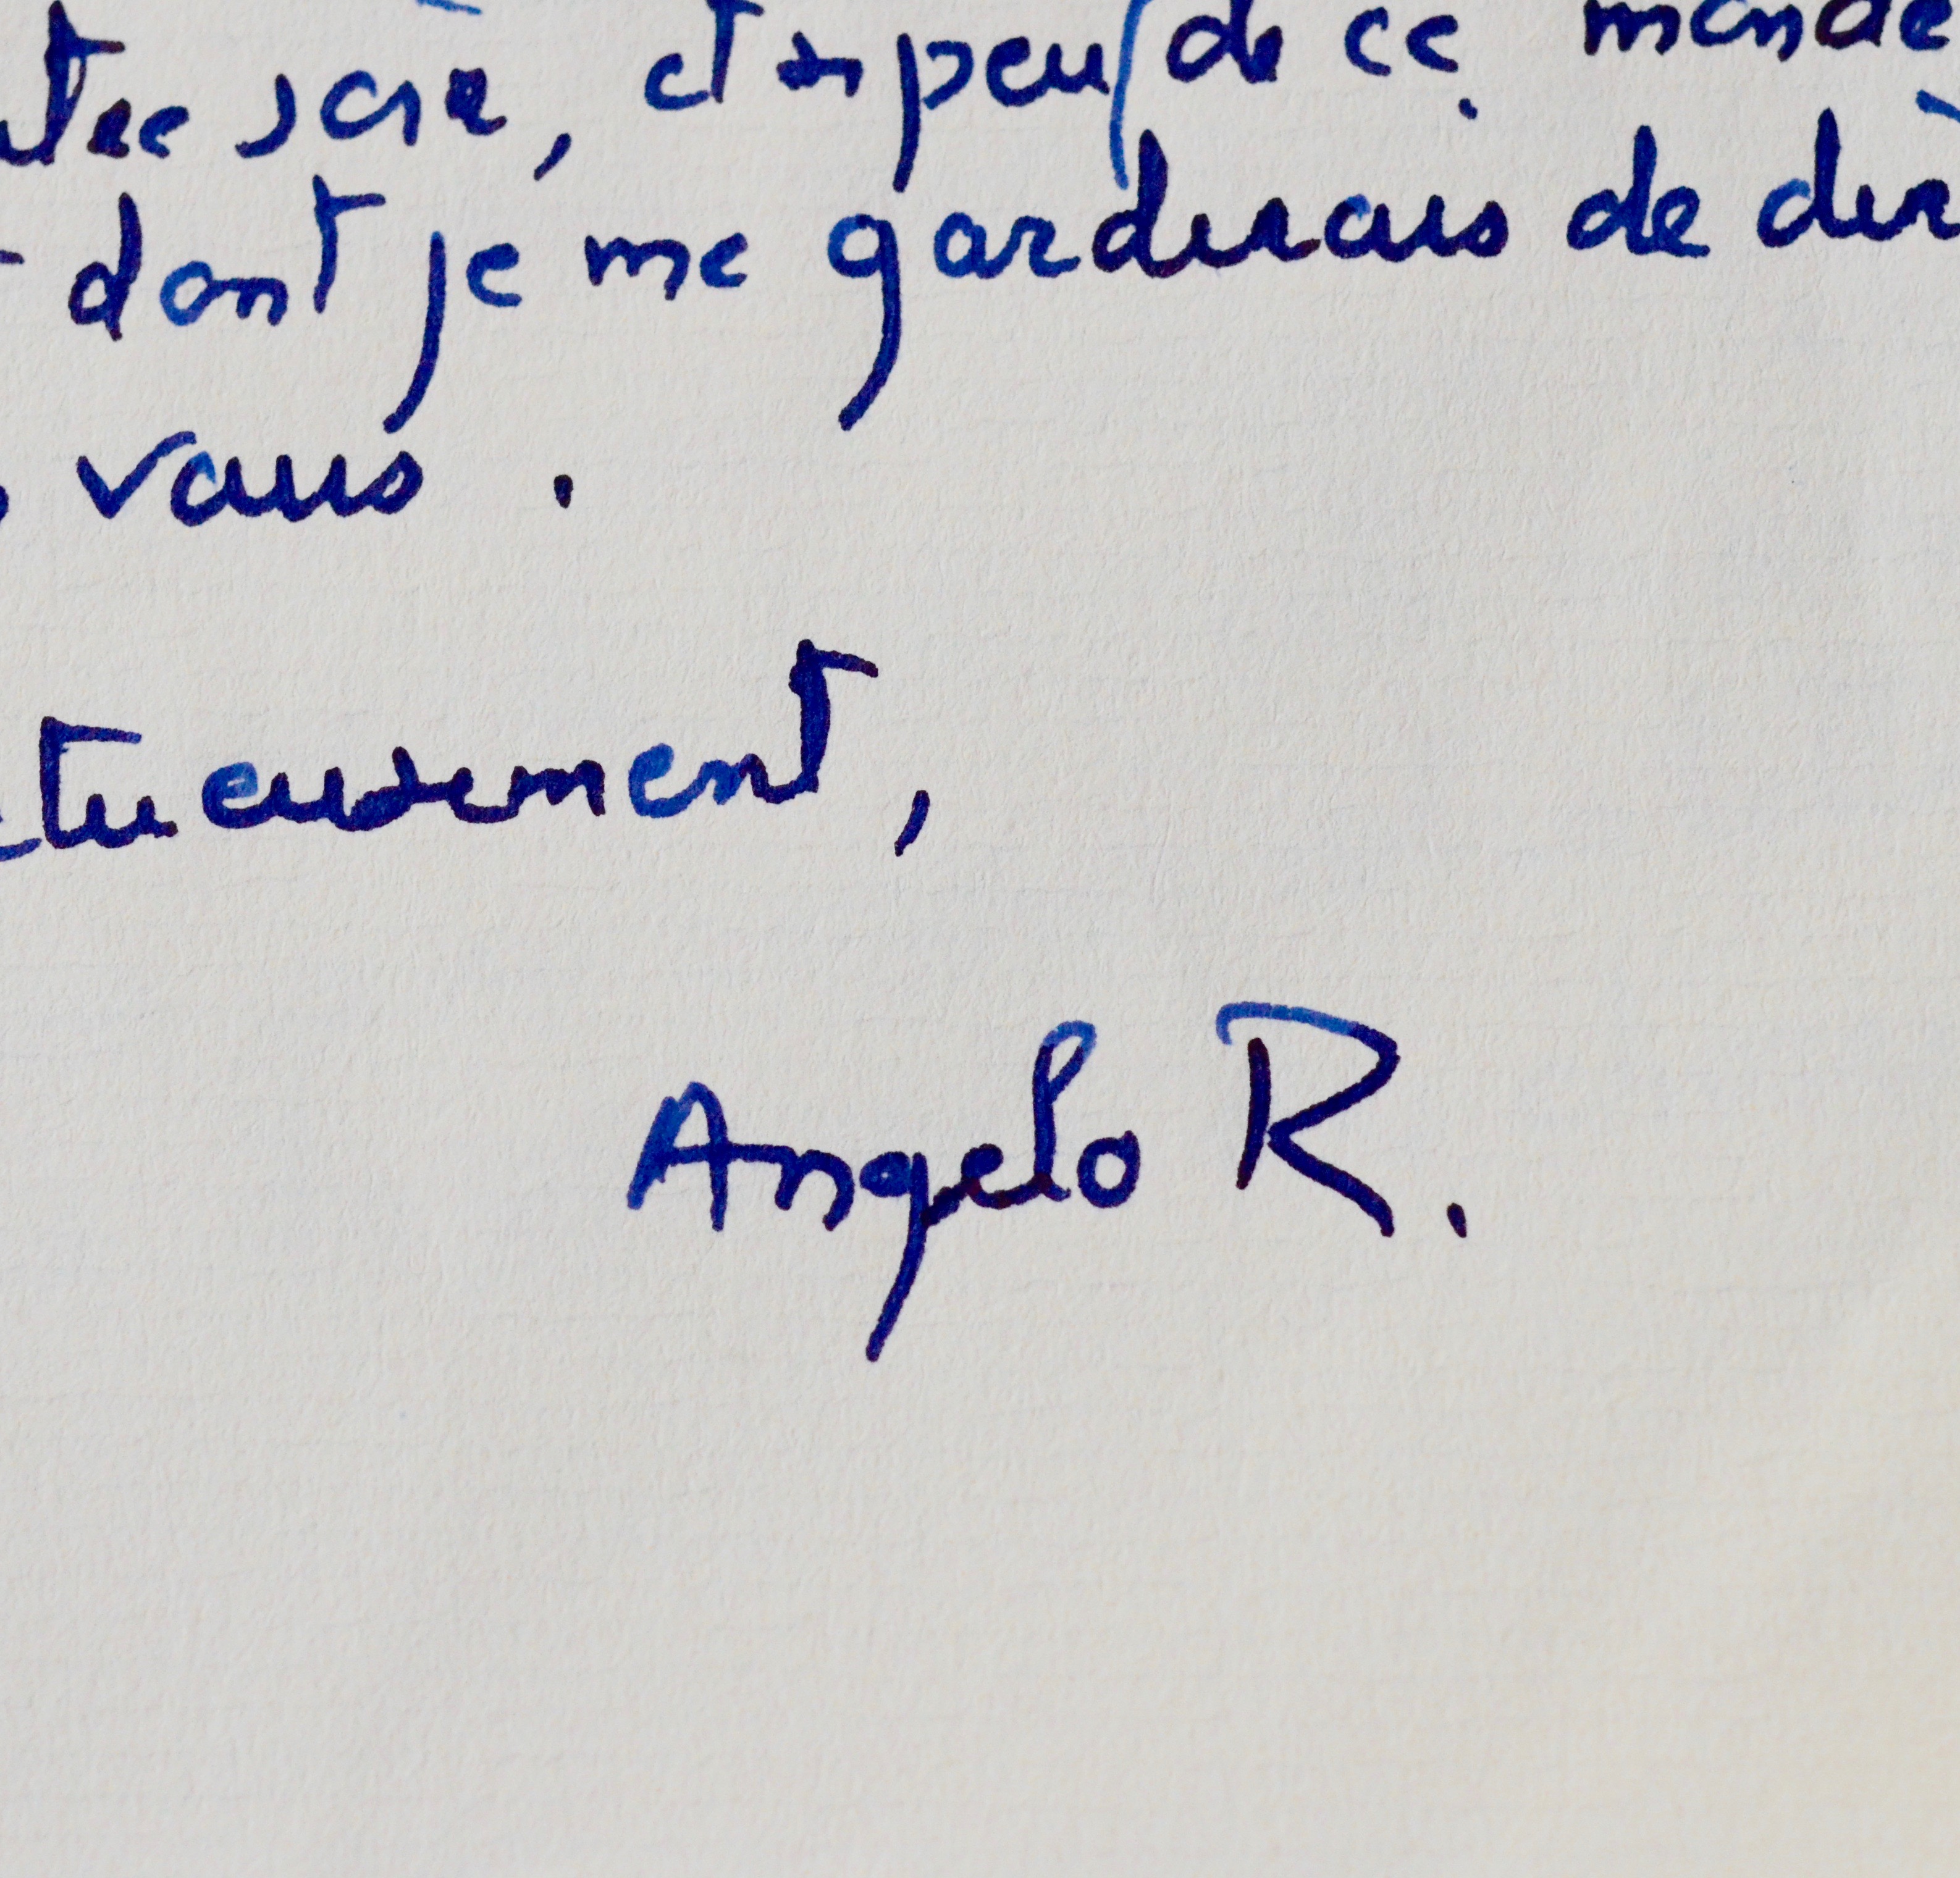 et si peu de ce monde
dont je me garderais de dir
vous .
tueusement,
Angelo R.